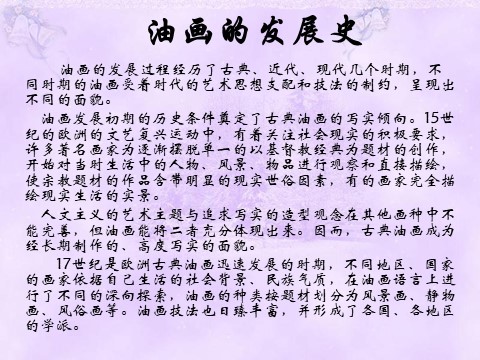 油画的发展史
油画的发展过程经历了古典、近代、现代几个时期，不
同时期的油画受着时代的艺术思想支配和技法的制约，呈现出
不同的面貌。
油画发展初期的历史条件奠定了古典油画的写实倾向。15世
纪的欧洲的文艺复兴运动中，有着关注社会现实的积极要求，
许多著名画家为逐渐摆脱单一的以基督教经典为题材的创作，
开始对当时生活中的人物、风景、物品进行观察和直接描绘，
使宗教题材的作品含带明显的现实世俗因素，有的画家完全描
绘现实生活的实景。
人文主义的艺术主题与追求写实的造型观念在其他画种中不
能完善，但油画能将二者充分体现出来。因而，古典油画成为
经长期制作的、高度写实的面貌。
17世纪是欧洲古典油画迅速发展的时期，不同地区、国家
的画家依据自己生活的社会背景、民族气质，在油画语言上进
行了不同的深向探索，油画的种类按题材划分为风景画、静物
画、风俗画等。油画技法也日臻丰富，并形成了各国、各地区
的学派。